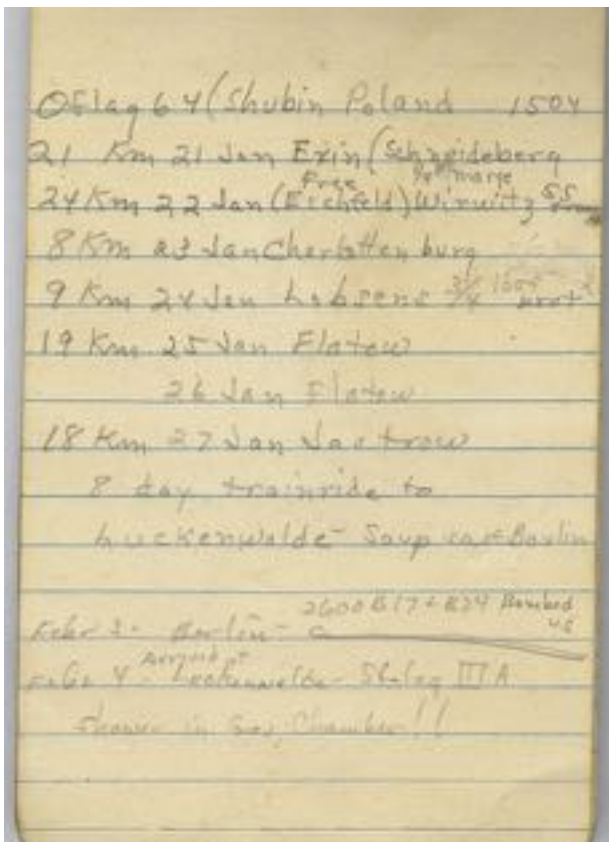 Oflag 64 (Shubin Poland 1504
21 Km 21 Jan Exin (Schneideberg
Free marge
24 Km 22 Jan (Eichfeld) Wirwitz SS
8 Km 23 Jan Charlottenburg
9 Km 24 Jan Lobsens 3/4
19 Km 25 Jan Flatow
26 Jan Flatow
18 Km 27 Jan Jastrow
8 day trainride to
Luckenwalde - Soup east Berlin
2600 B17 + B24 Bombed
us
Febr 3 - Berlin -
Arrived
Febr 4 - Luckenwalde - Stalag III A
Shower in Gas Chamber!!